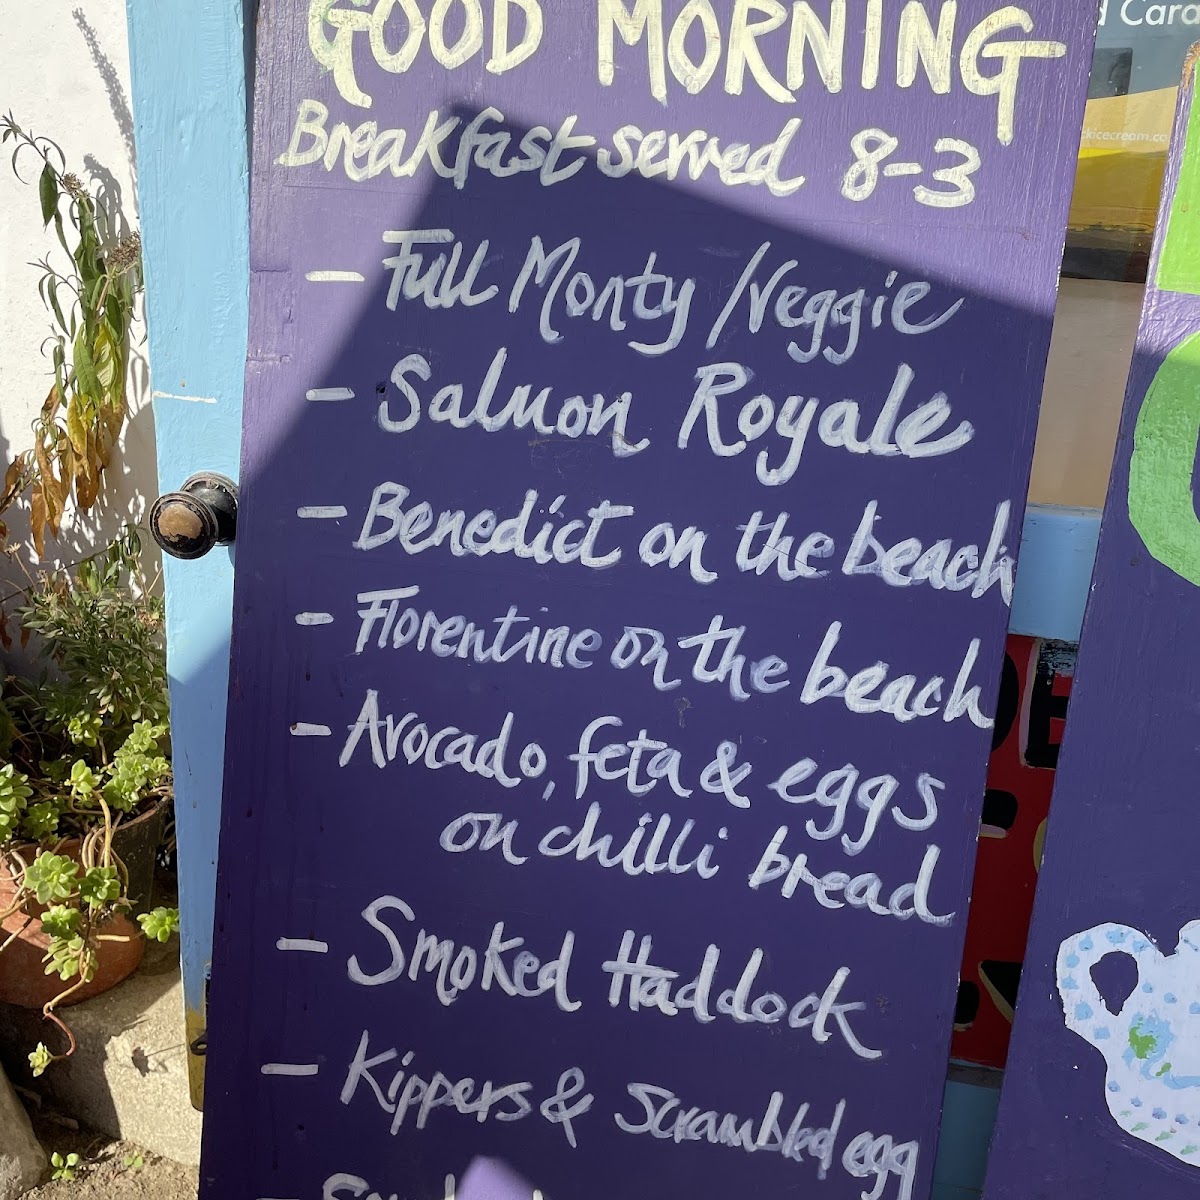 GOOD MORNING
Breakfast served 8-3
- Full Monty / Veggie
- Salmon Royale
- Benedict on the beach
- Florentine on the beach
- Avocado, feta & eggs
on chilli bread
- Smoked Haddock
- Kippers & Scrambled egg
d Cara
ckicecream.co